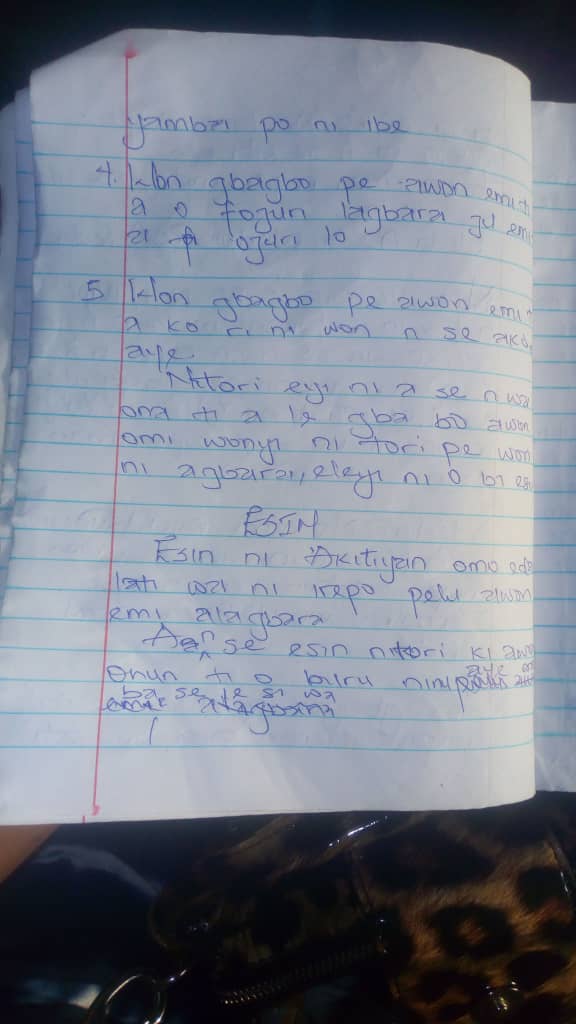 yambari po ni ibe
4. Won gbagbo pe awon emi ti
a o fogun lagbara ju emi
a ojuri lo
5 Won gbagbo pe awon emi ti
a ko ri ni won n se
aye.
Nitori eyi ni a se n wa
ona ti a le gba bo awon
omi wonyi ni tori pe won
ni agbara, eleyi ni o bi esi
ESIN
Esin ni Akitiyan omo eda
lati wa ni irepo pelu awon
emi alagbara
Aan se esin nitori ki awo
onun ti o buru ninu aye
ba se le si wa